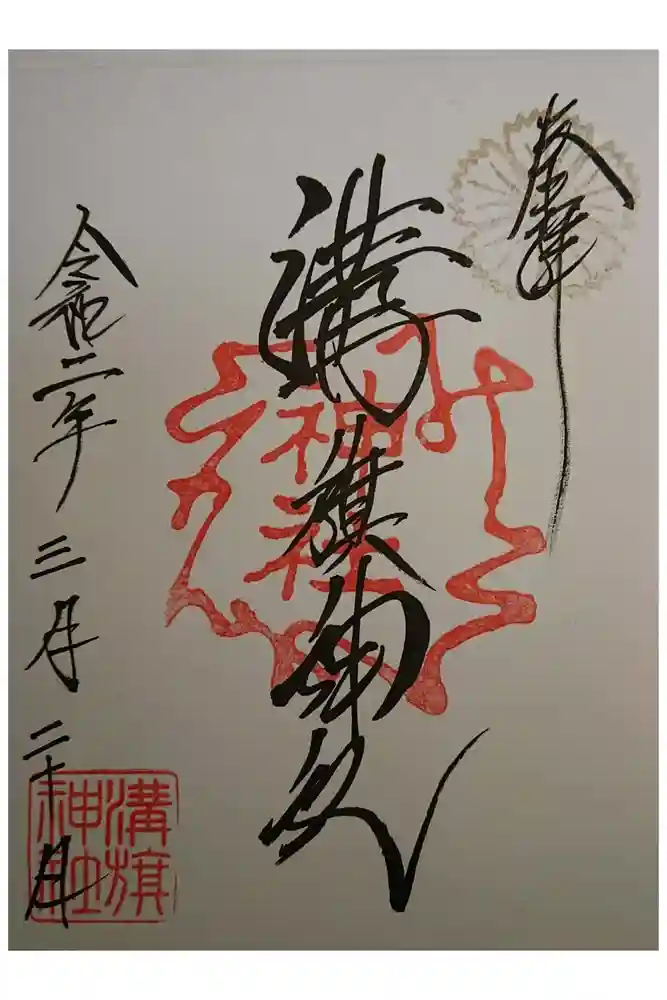 奉拝
溝旗神社
神社
令和二年三月二十日
溝旗
神社